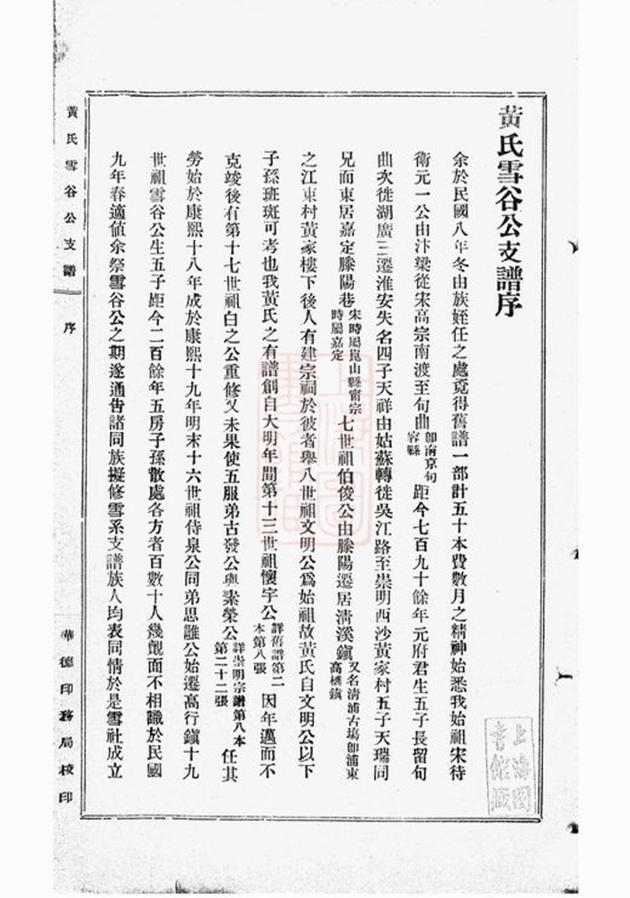 黃氏雪谷公支譜序
余於民國八年冬由族姪任之處竟得舊譜一部計五十本費數月之精神始悉我始祖宋待
衛元一公由汴梁從宋高宗南渡至句曲卽南京句容縣距今七百九十餘年元府君生五子長留句
曲次徙湖廣三遷淮安失名四子天祥由姑蘇轉徙吳江路至崇明西沙黃家村五子天瑞同
兄而東居嘉定滕陽巷宋時屬崑山縣甯宗時屬嘉定七世祖伯俊公由滕陽遷居淸溪鎭又名淸浦古塲卽浦東高橋鎭
之江東村黃家樓下後人有建宗祠於彼者舉八世祖文明公爲始祖故黃氏自文明公以下
子孫班班可考也我黃氏之有譜創自大明年間第十三世祖懷宇公詳舊譜第二本第八張因年邁而不
克竣後有第十七世祖白之公重修又未果使五服弟古發公與素榮公詳崇明宗譜第八本第二十二張任其
勞始於康熙十八年成於康熙十九年明末十六世祖侍泉公同弟思讙公始遷高行鎭十九
世祖雪谷公生五子距今二百餘年五房子孫散處各方者百數十人幾覿面而不相識於民國
九年春適値余祭雪谷公之期遂通告諸同族擬修雪系支譜族人均表同情於是雪社成立
黃氏雪谷公支譜
序
華德印務局校印
上海圖書館藏